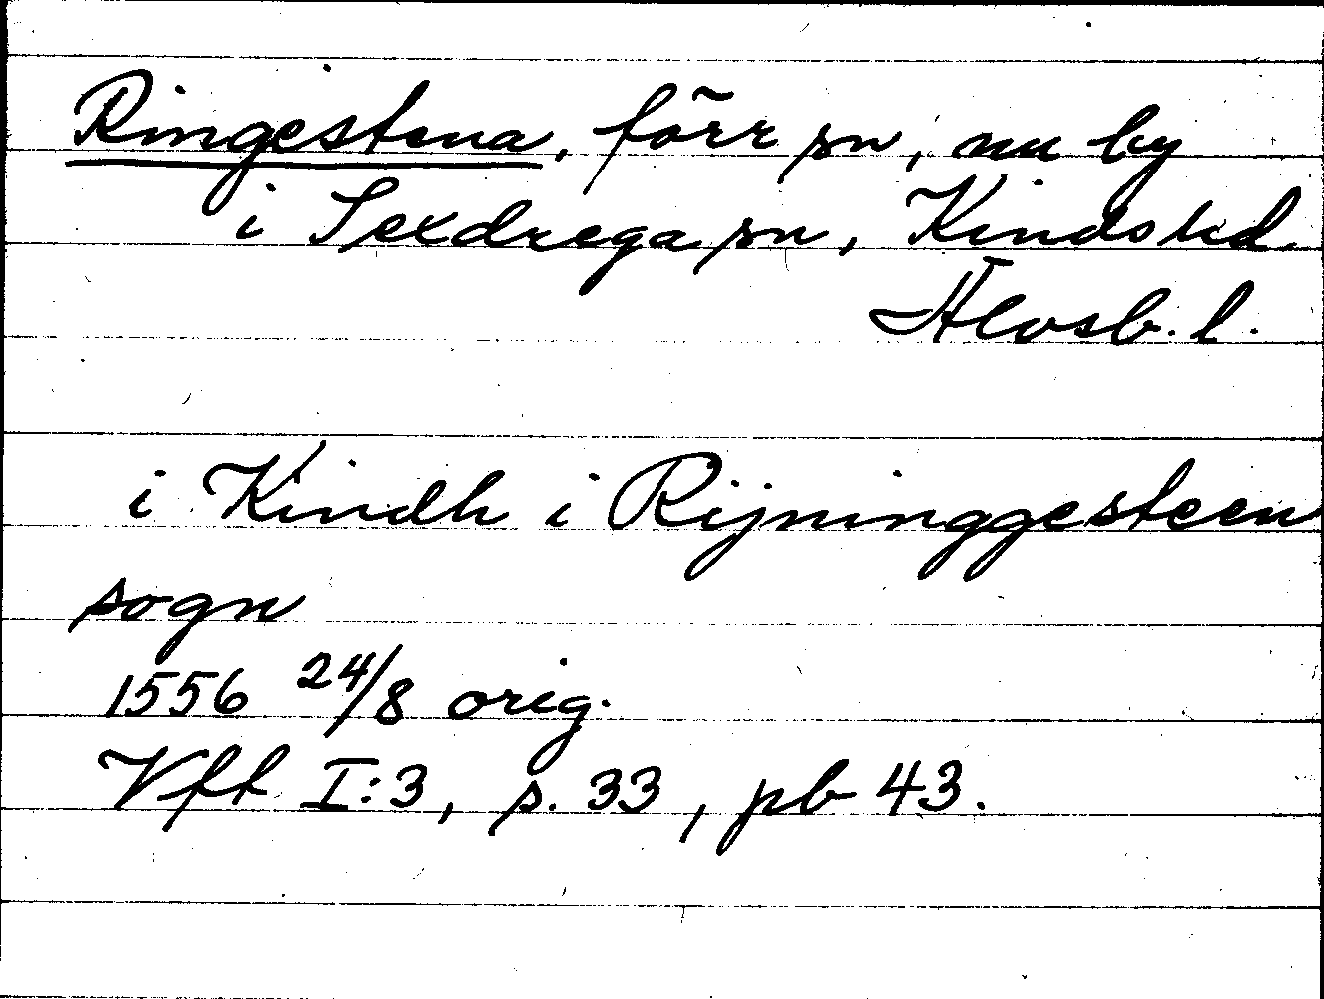 Ringestena, förr sn, nu by
i Sexdrega sn, Kinds hd.
Älvsb. l.
i Kindh i Rijninggesteen
sogn
1556 24/8 orig.
Vft I:3, s. 33, pb 43.